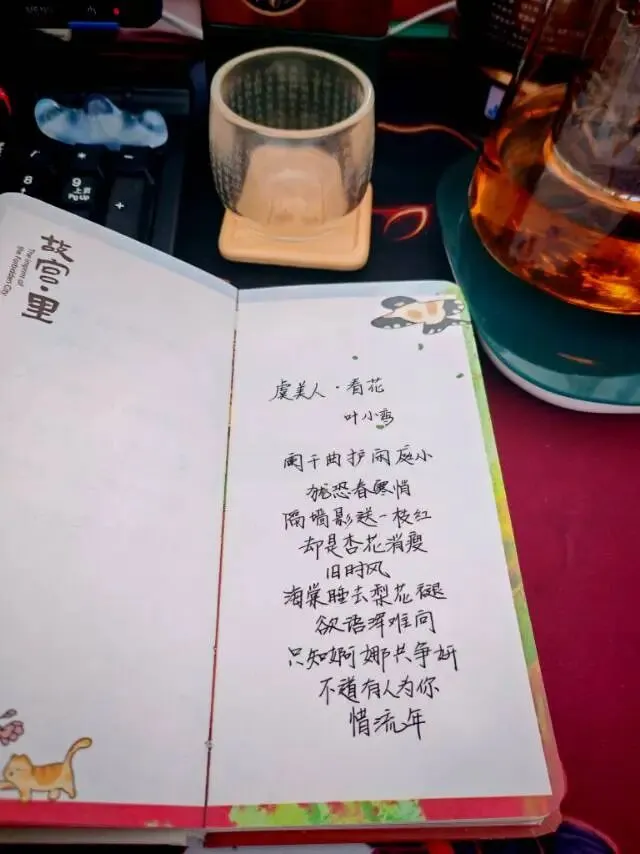 故宫·里
The imprint of
the Forbidden City
虞美人·看花
叶小鸾
阑干曲护闲庭小
犹恐春寒悄
隔墙影送一枝红
却是杏花消瘦
旧时风
海棠睡去梨花褪
欲语浑难问
只知婀娜共争妍
不道有人为你
惜流年
* -
8 9 +